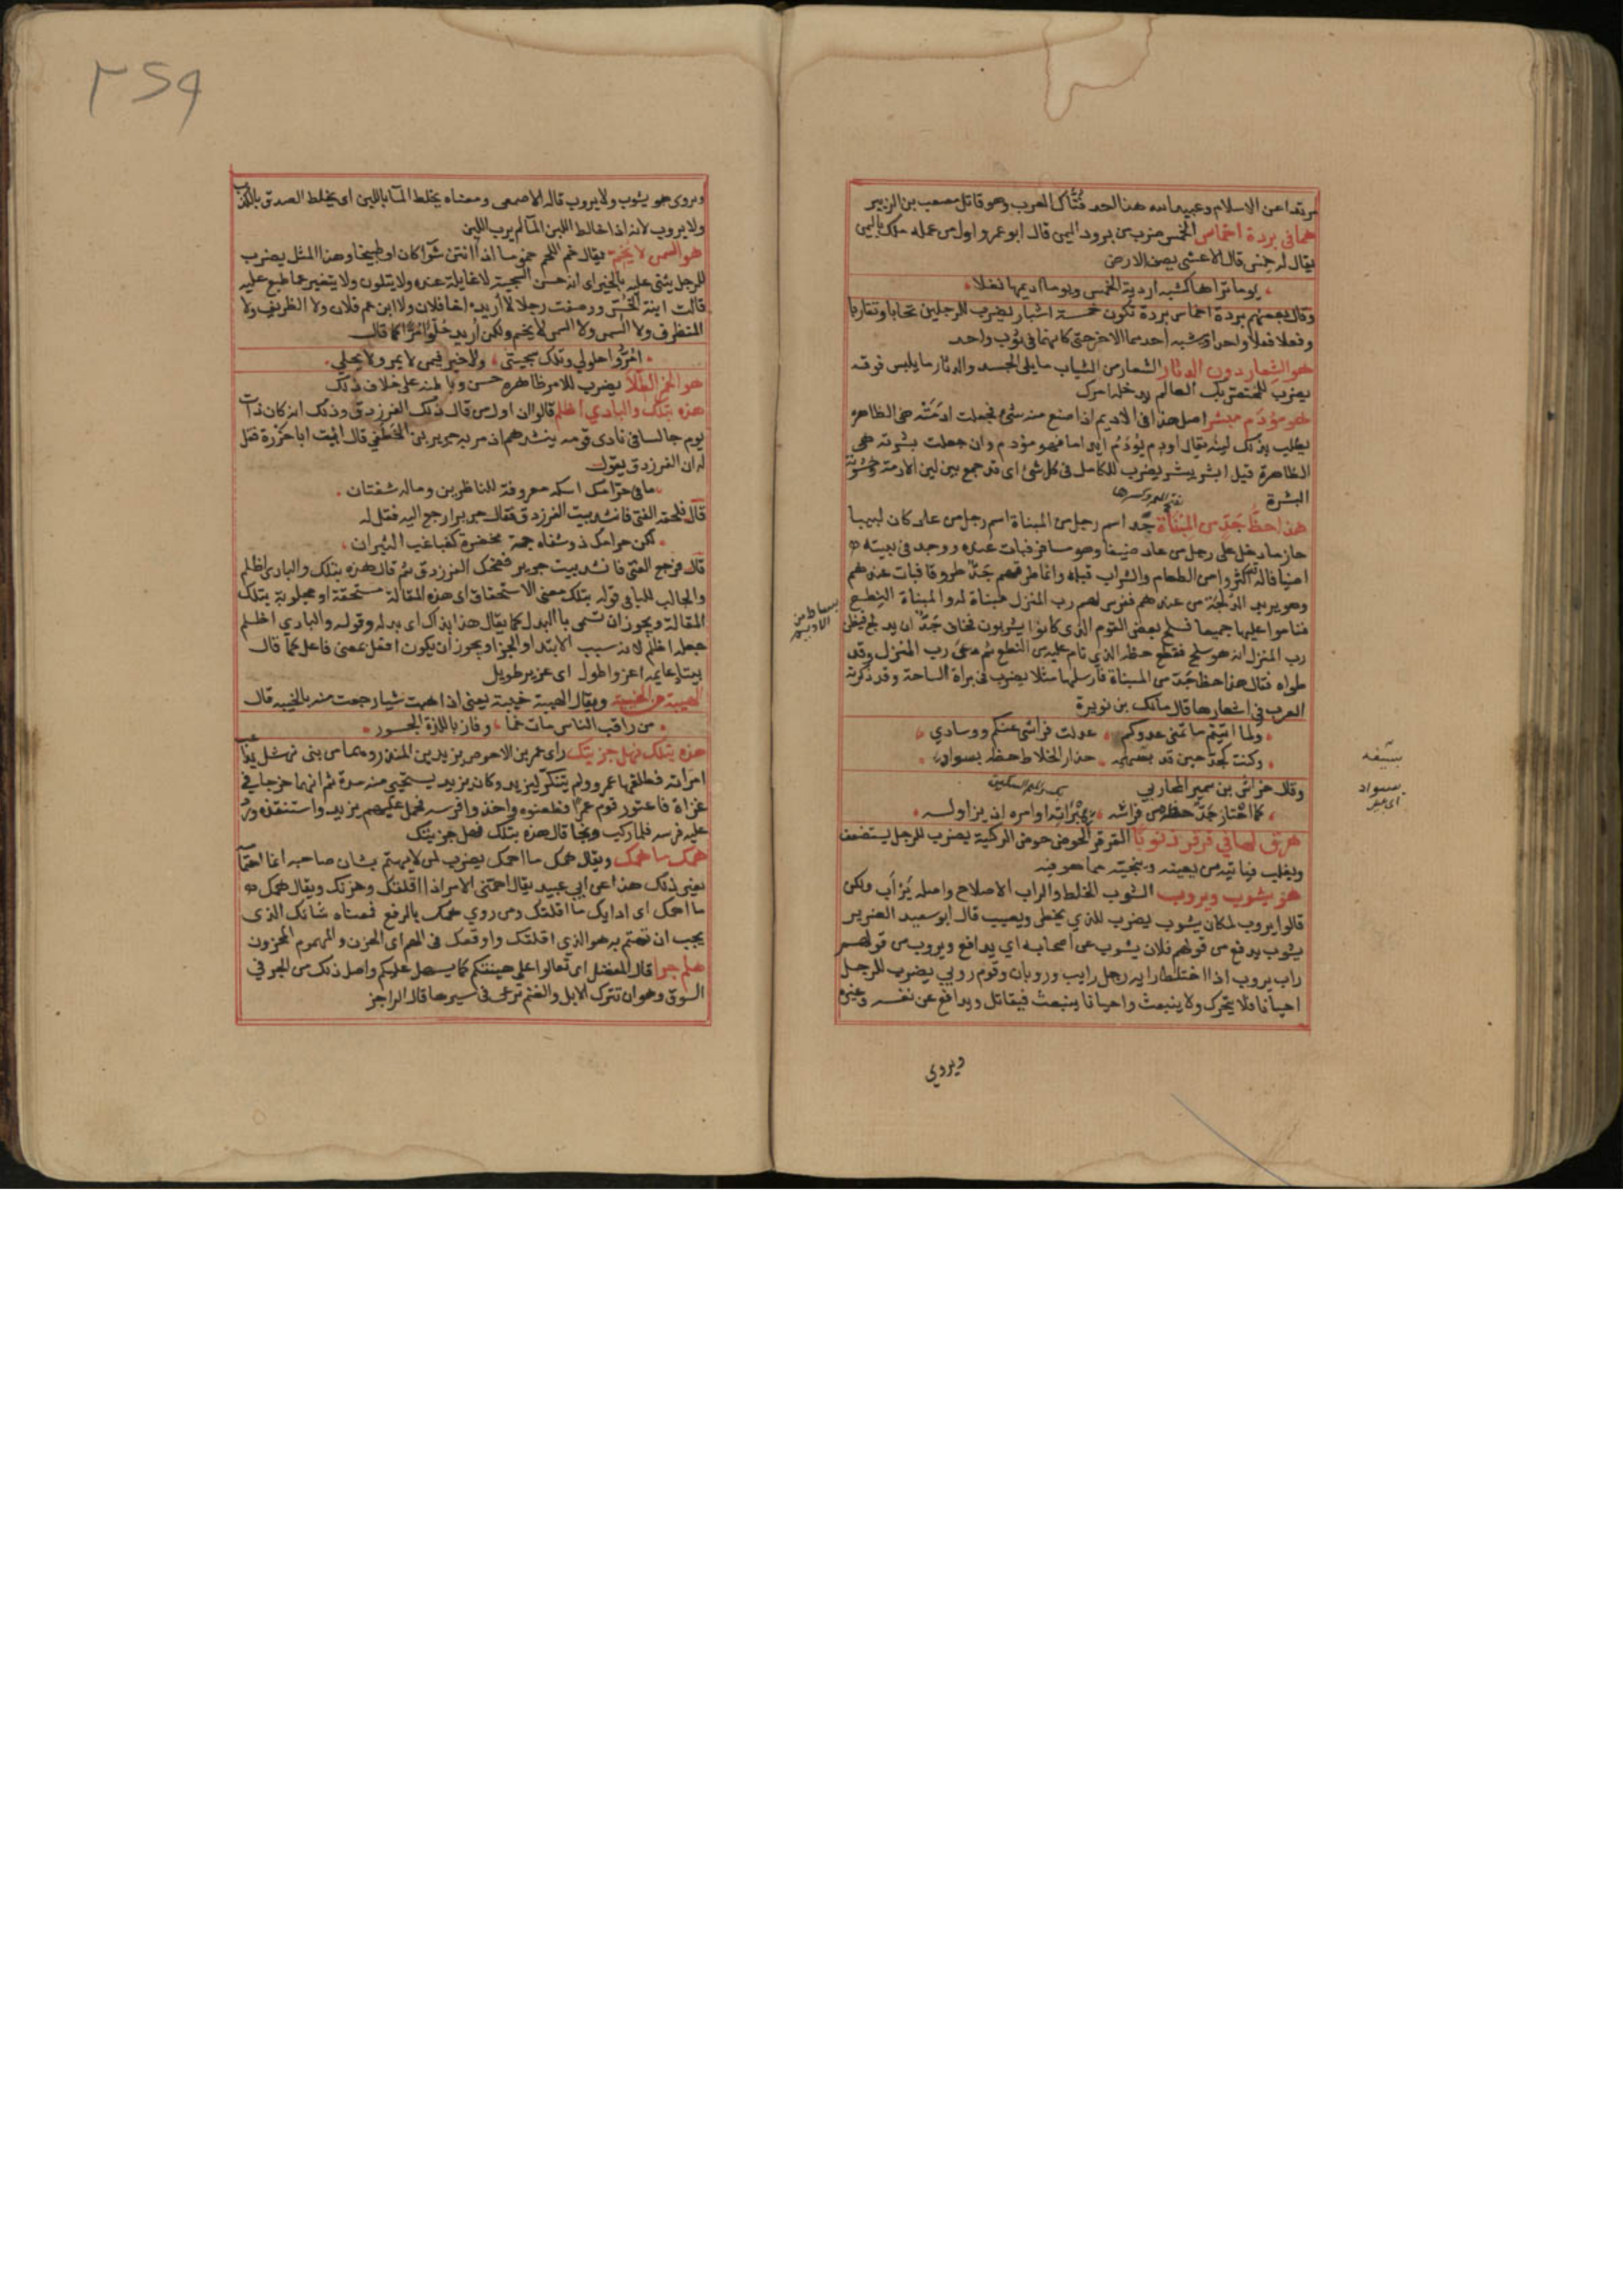 مرتدا عن الاسلام وعبيد الله هذا احد فتاك العرب وهو قاتل مصعب بن الزبير
هما في بردة اخماس الخمس ضرب من برود اليمن قال ابو عمرو اول من عمله ملك باليمن
يقال له خمس قال الاعشى يصف الارض
يوما تراها كشبه اردية الخمس ويوما اديمها نغلا
وقال بعضهم بردة اخماس بردة تكون خمسة اشبار يضرب للرجلين تحابا وتقاربا
وفعلا فعلا واحدا وشبه احدهما الاخر حتى كانهما في ثوب واحد
هو الشعار دون الدثار الشعار من الثياب ما يلي الجسد والدثار ما يلبس فوقه
يضرب للمختص بك العالم بدخلة امرك
هو مؤدم مبشر اصل هذا في الاديم اذا صنع منه شيء فجعلت ادمته هي الظاهره
يطلب بذلك لينه يقال اودم يؤدم ايداما فهو مؤدم وان جعلت بشرته هي
الظاهرة قيل ابشر يبشر يضرب للكامل في كل شئ اي قد جمع بين لين الادمة وخشونة
البشرة
بفتح الميم وكسرها
هذا حظ جد من المبناة جد اسم رجل من المبناة اسم رجل من عاد كان لبيبا
حازما دخل على رجل من عاد ضيفا وهو مسافر فبات عنده ووجد في بيته
اضيافا له قد اكثروا من الطعام والشراب قبله وانما طرقهم جد طروقا فبات عندهم
وهو يريد الدلجة من عندهم ففرش لهم رب المنزل مبناة له والمبناة النطع
فناموا عليها جميعا فسلح بعض القوم الذي كانوا يشربون فخاف جد ان يدلج فيظن
رب المنزل انه هو سلح فقطع حظه الذي نام عليه من النطع ثم دعى رب المنزل وقد
طواه فقال هذا حظ جد من المبناة فارسلها مثلا يضرب في براة الساحة وقد ذكرته
العرب في اشعارها قال مالك بن نويرة
ولما اتيتم ما تمنى عدوكم عدلت فراشي عنكم ووسادي
وكنت كجد حين قد بسهمه حذار الخلاط حظه بسواد
وقال خراش بن سمير المحاربي
كما اختار جد حظه من فراشه بمبراته او امره اذ يزاوله
هرق لها في قرقر ذنوبا القرقر الحوض حوض الركية يضرب للرجل يستضعف
ويغلب فياتيه من يعينه وينجيه مما هو فيه
هو يشوب ويروب الشوب الخلط والراب الاصلاح واصله يرأب ولكن
قالوا يروب لمكان يشوب يضرب للذي يخطئ ويصيب قال ابو سعيد الضرير
يشوب يدفع من قولهم فلان يشوب عن اصحابه اي يدافع ويروب من قولهم
راب يروب اذا اختلط رايه رجل رايب وروبان وقوم روبى يضرب للرجل
احيانا فلا يتحرك ولا ينبعث واحيانا ينبعث فيقاتل ويدافع عن نفسه وغيره
ويروى
بساط من
الاديم
ويروى هو يشوب ولا يروب قاله الاصمعي ومعناه يخلط الما باللبن اى يخلط الصدق بالكذب
ولا يروب لانه اذا خالط اللبن الما لم يرب اللبن
هو السمن لا يخم يقال خم اللحم خموما اذا انتن شوا كان او طبيخا وهذا المثل يضرب
للرجل يثنى عليه بالخير اى انه حسن السجية لا غايلة عنده ولا يتلون ولا يتغير عما طبع عليه
قالت ابنة الخس ووصفت رجلا لا اريده اخا فلان ولا ابن عم فلان ولا الظريف ولا
المتظرف ولا السمن ولا السمن لا يخم ولكن اريد حلوا مرا كما قال
امر واحلولي وتلك سجيتي ولا خير فيمن لا يمر ولا يحلي
هو الخز الطلا يضرب للامر ظاهره حسن وباطنه على خلاف ذلك
هذه بتلك والبادي اظلم قالوا ان اول من قال ذلك الفرزدق وذلك انه كان ذات
يوم جالسا في نادي قومه ينشدهم اذ مر به جرير بن الخطفي قال ائيت ابا حزرة فقل
له ان الفرزدق يقول
ما في حرامك اسكة معروفة للناظرين وما له شفتان
قال فلحقه الفتى فانشد بيت الفرزدق فقال جرير ارجع اليه فقل له
لكن حرامك ذو شفاه جمة مخضرة كغباغب الثيران
قال فرجع الفتى فانشد بيت جرير فضحك الفرزدق ثم قال هذه بتلك والبادي اظلم
والجالب للبا في قوله بتلك معنى الاستحقاق اى هذه المقالة مستحقة او مجلوبة بتلك
المقالة ويجوز ان تسمى با البدل كما يقال هذا بذاك اى بدله وقوله والبادي اظلم
جعله اظلم لانه سبب الابتدا والجزا ويجوز ان يكون افعل بمعنى فاعل كما قال
بيتا دعايمه اعز واطول اى عزيز طويل
الهيبة من الخيبة ويقال الهيبة خيبة يعنى اذا هبت شيا رجعت منه بالخيبه قال
من راقب الناس مات غما وفاز باللذة الجسور
هذه بتلك فهل جزيتك راى عمرو بن الاحوص يزيد بن المنذر وهما من بني نهشل يداعب
امراته فطلقها عمرو ولم يتنكر ليزيد وكان يزيد يستحيي منه مدة ثم انهما خرجا في
غزاة فاعتور قوم عمرا فطعنوه واخذوا فرسه فحمل عليهم يزيد واستنقذه ورد
عليه فرسه فلما ركب ونجا قال هذه بتلك فهل جزيتك
همك ما همك ويقال همك ما اهمك يضرب لمن لا يهتم بشان صاحبه انما اهتمامه
بغير ذلك هذا عن ابي عبيد يقال اهمني الامر اذا اقلقك وحزنك ويقال همك
ما اهمك اى ادابك ما اقلقك ومن روى همك بالرفع فمعناه شانك الذى
يجب ان تهتم به هو الذي اقلقك واوقعك في الهم اى الحزن والمهموم المحزون
هلم جرا قال المفضل اى تعالوا على هينتكم كما يسهل عليكم واصل ذلك من الجر في
السوق وهو ان تترك الابل والغنم ترعى في سيرها قال الراجز